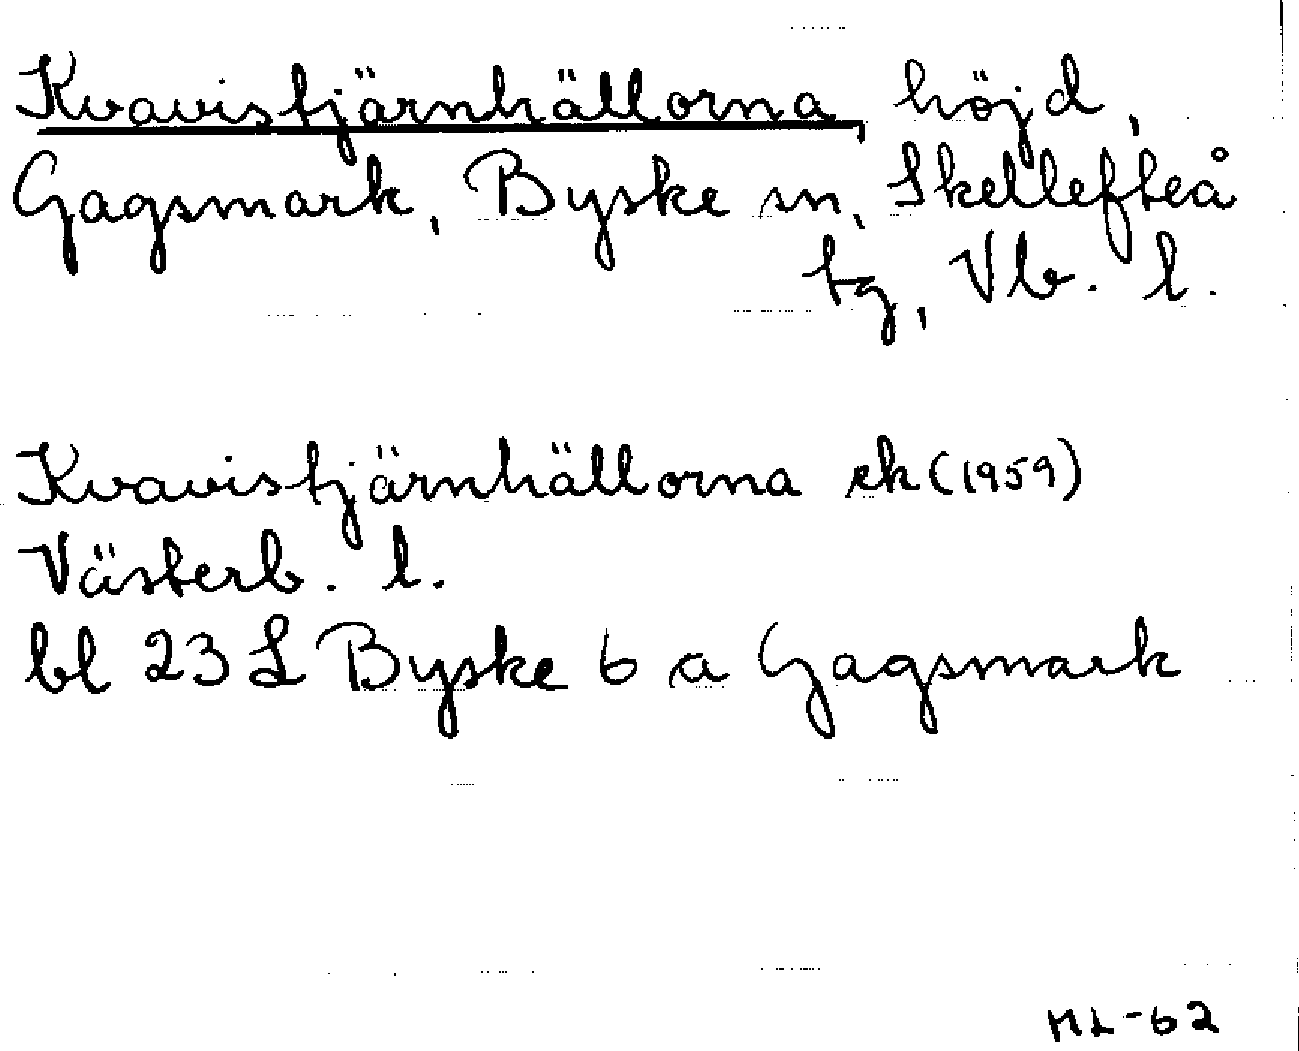 Kvavistjärnhällorna, höjd,
Gagsmark, Byske sn, Skellefteå
tg, Vb. l.
Kvavistjärnhällorna ek (1959)
Västerb. l.
bl 23 L Byske 6 a Gagsmark
ML-62